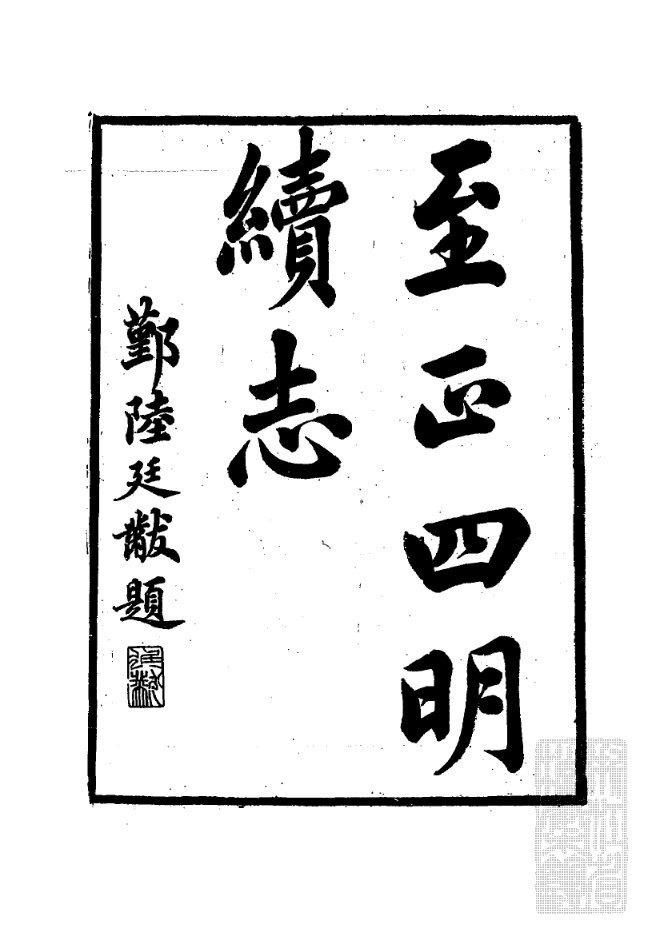 至正四明
續志
鄞陸廷黻題